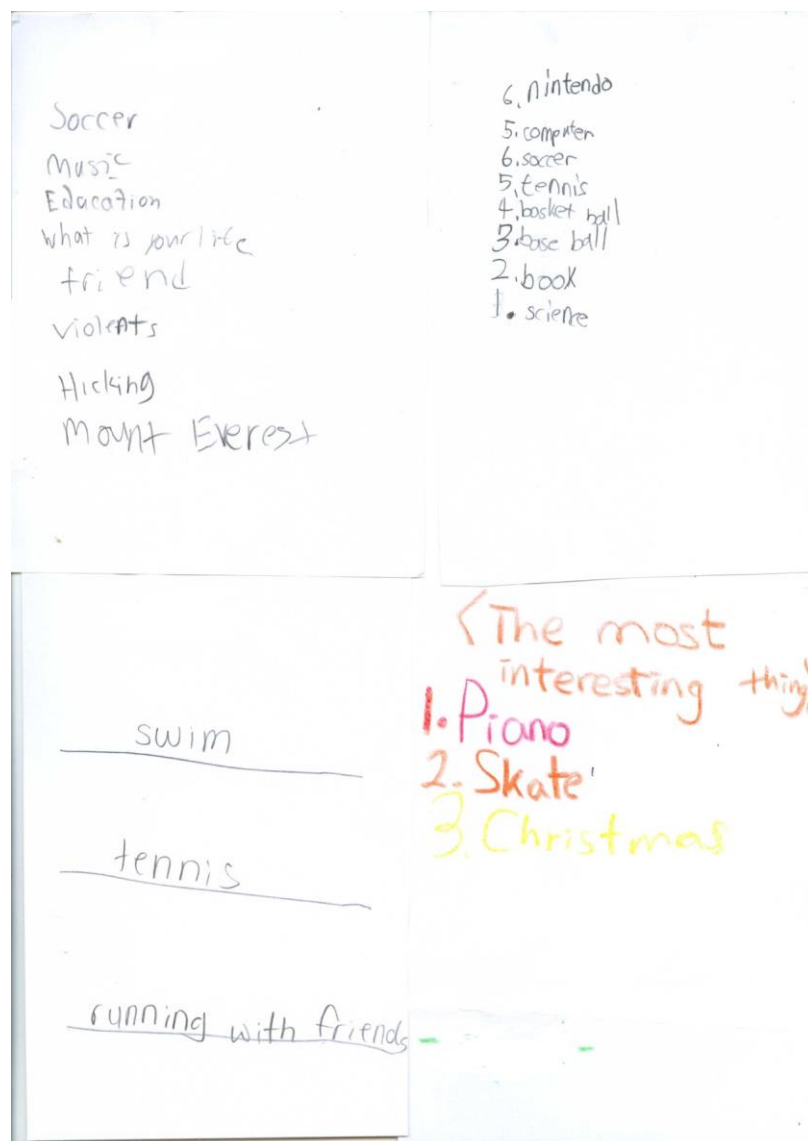 Soccer
Music
Education
What is your life
friend
violents
Hicking
Mount Everest
6. nintendo
5. computer
6. soccer
5. tennis
4. basket ball
3. base ball
2. book
1. science
swim
tennis
running with friends
<The most
interesting thing
1. Piano
2. Skate
3. Christmas